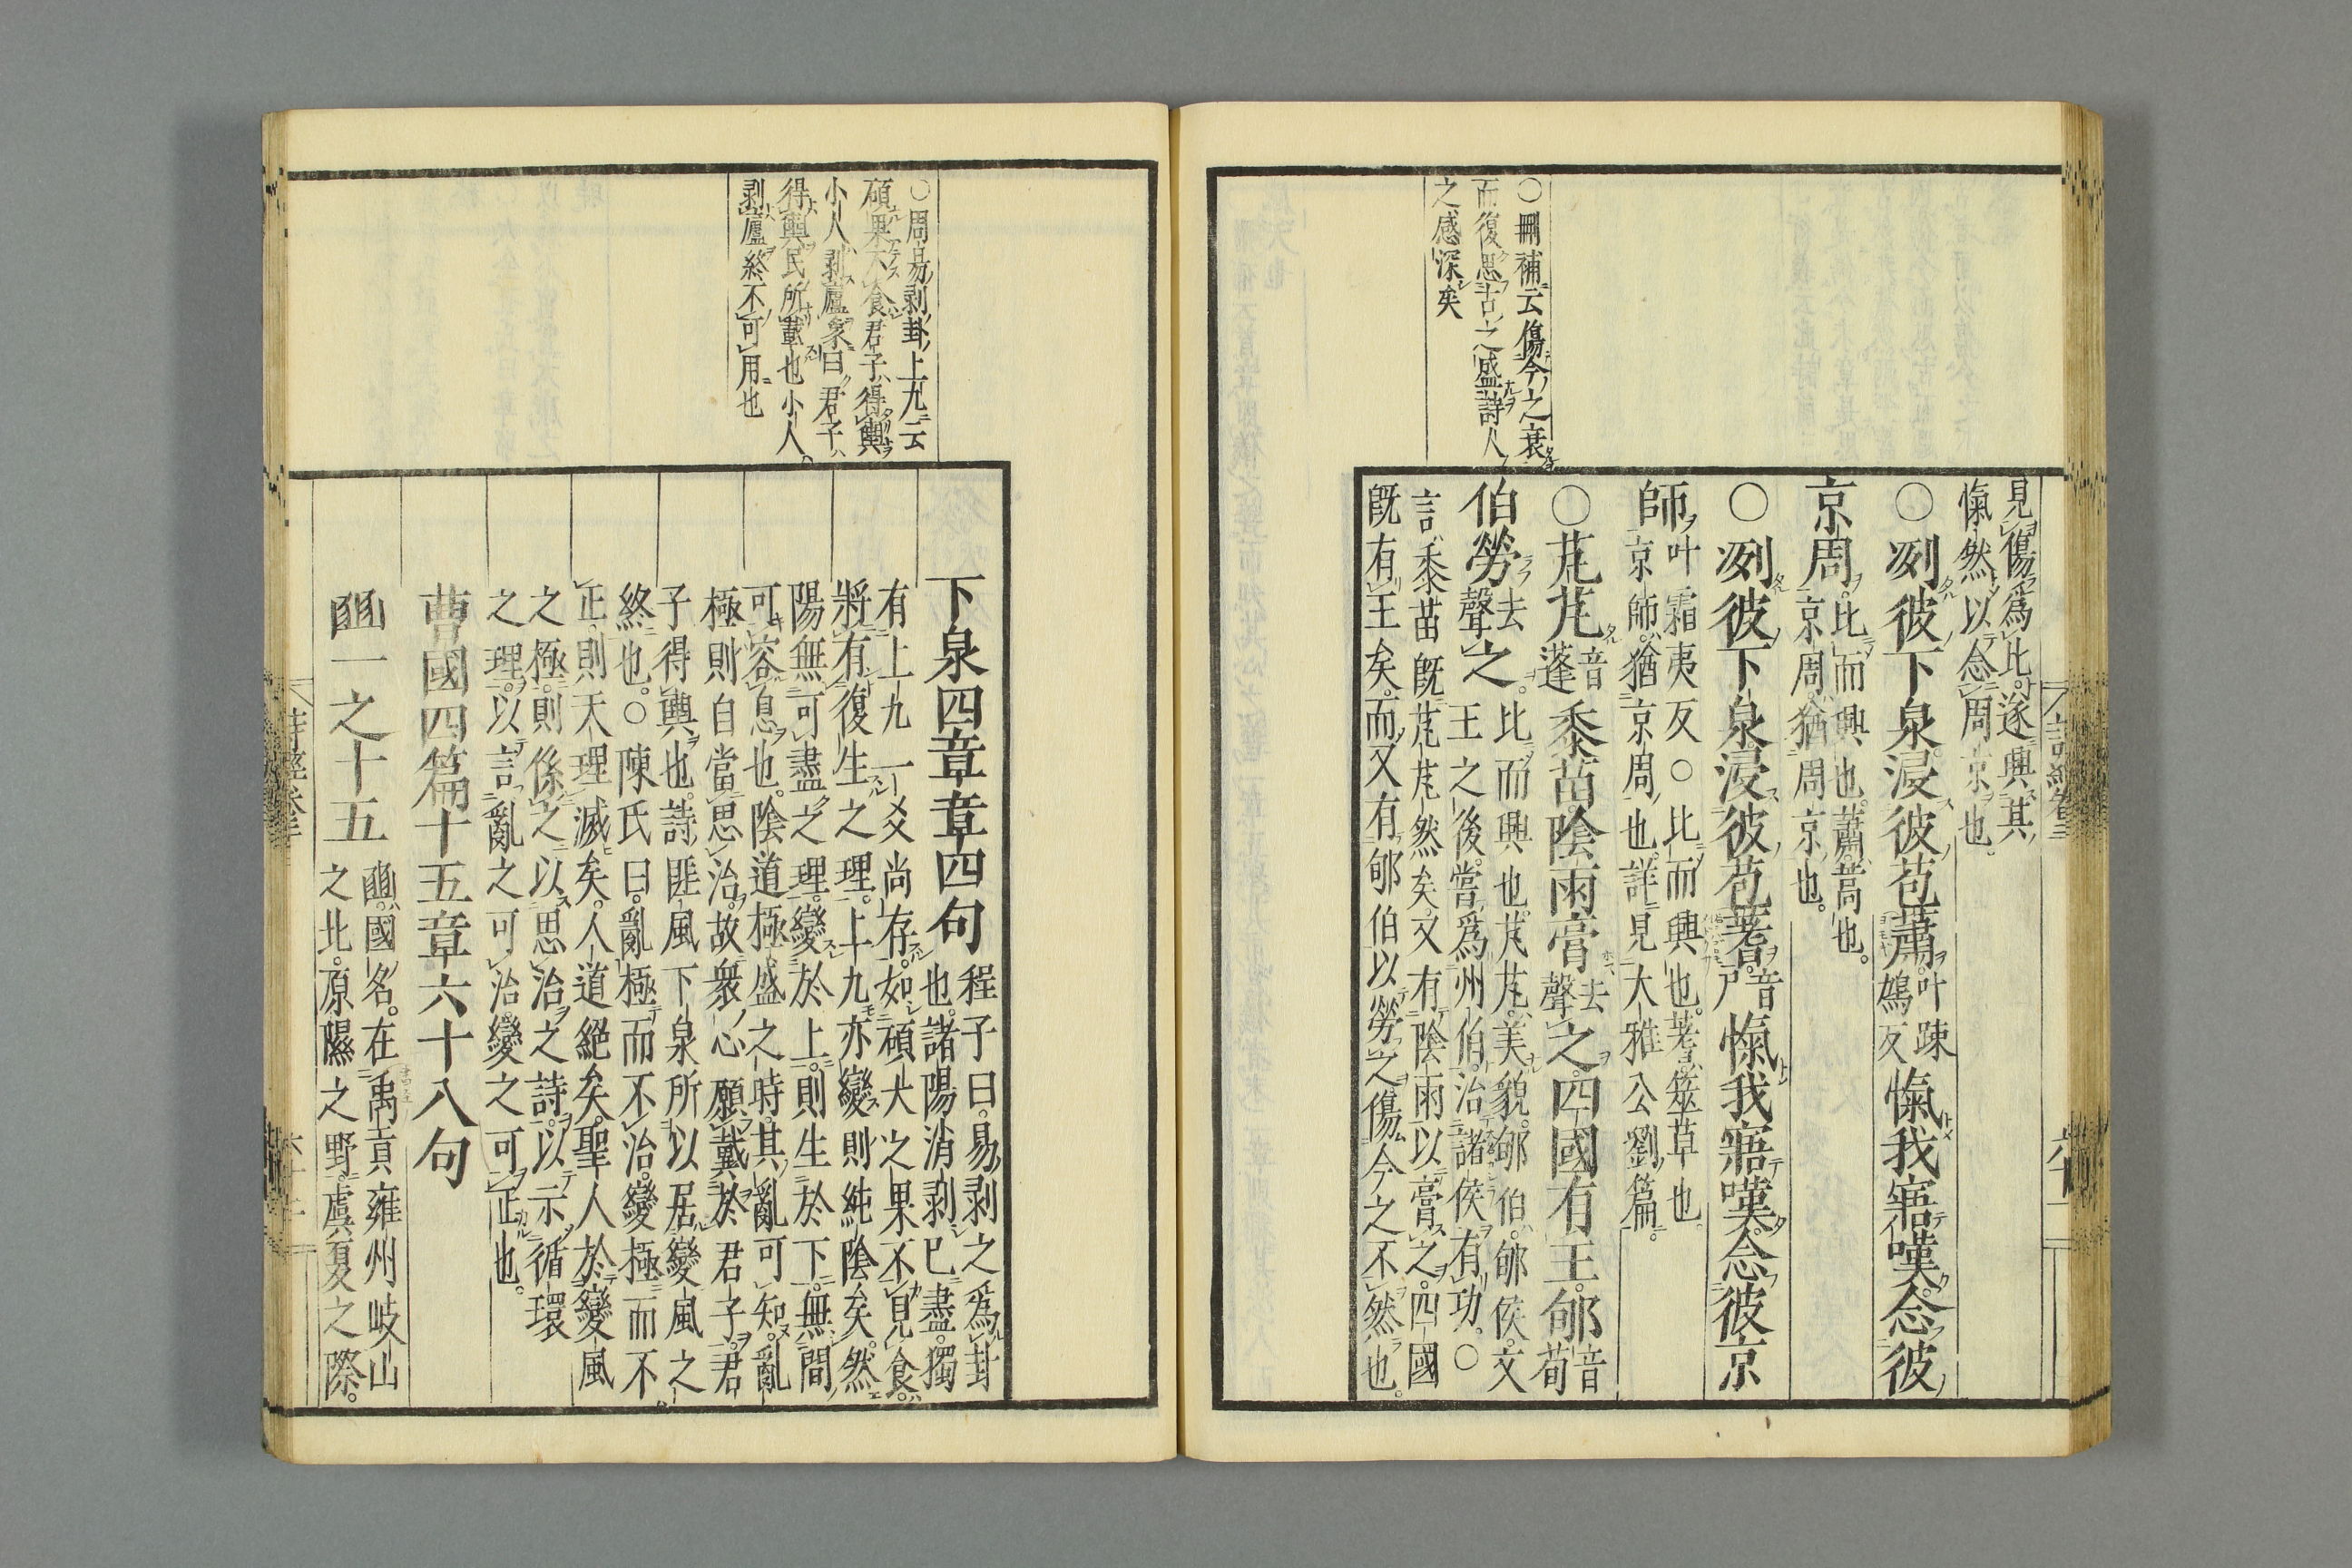 〇刪補云傷今之衰
而復思古之盛詩人
之感深矣
見傷爲比遂興其
愾然以念周京也
〇冽彼下泉浸彼苞蕭叶疎鳩反愾我寤嘆念彼
京周比而興也蕭蒿也京周猶周京也
〇冽彼下泉浸彼苞蓍音尸愾我寤嘆念彼京
師叶霜夷反〇比而興也蓍筮草也京師猶京周也詳見大雅公劉篇
〇芃芃音蓬黍苗陰雨膏去聲之四國有王郇音荀
伯勞去聲之比而興也芃芃美貌郇伯郇侯文王之後嘗爲州伯治諸侯有功〇
言黍苗旣芃芃然矣又有陰雨以膏之四國
旣有王矣而又有郇伯以勞之傷今之不然也
〇周易剥卦上九云
碩果不食君子得輿
小人剥廬象曰君子
得輿民所載也小人
剥廬終不可用也
下泉四章章四句程子曰易剥之爲卦也諸陽消剥已盡獨
有上九一爻尚存如碩大之果不見食
將有復生之理上九亦變則純陰矣然
陽無可盡之理變於上則生於下無間
可容息也陰道極盛之時其亂可知亂
極則自當思治故衆心願戴於君子君
子得輿也詩匪風下泉所以居變風之
終也〇陳氏曰亂極而不治變極而不
正則天理滅矣人道絕矣聖人於變風
之極則係之以思治之詩以示循環
之理以言亂之可治變之可正也
曹國四篇十五章六十八句
豳一之十五豳國名在禹貢雍州岐山之北原隰之野虞夏之際